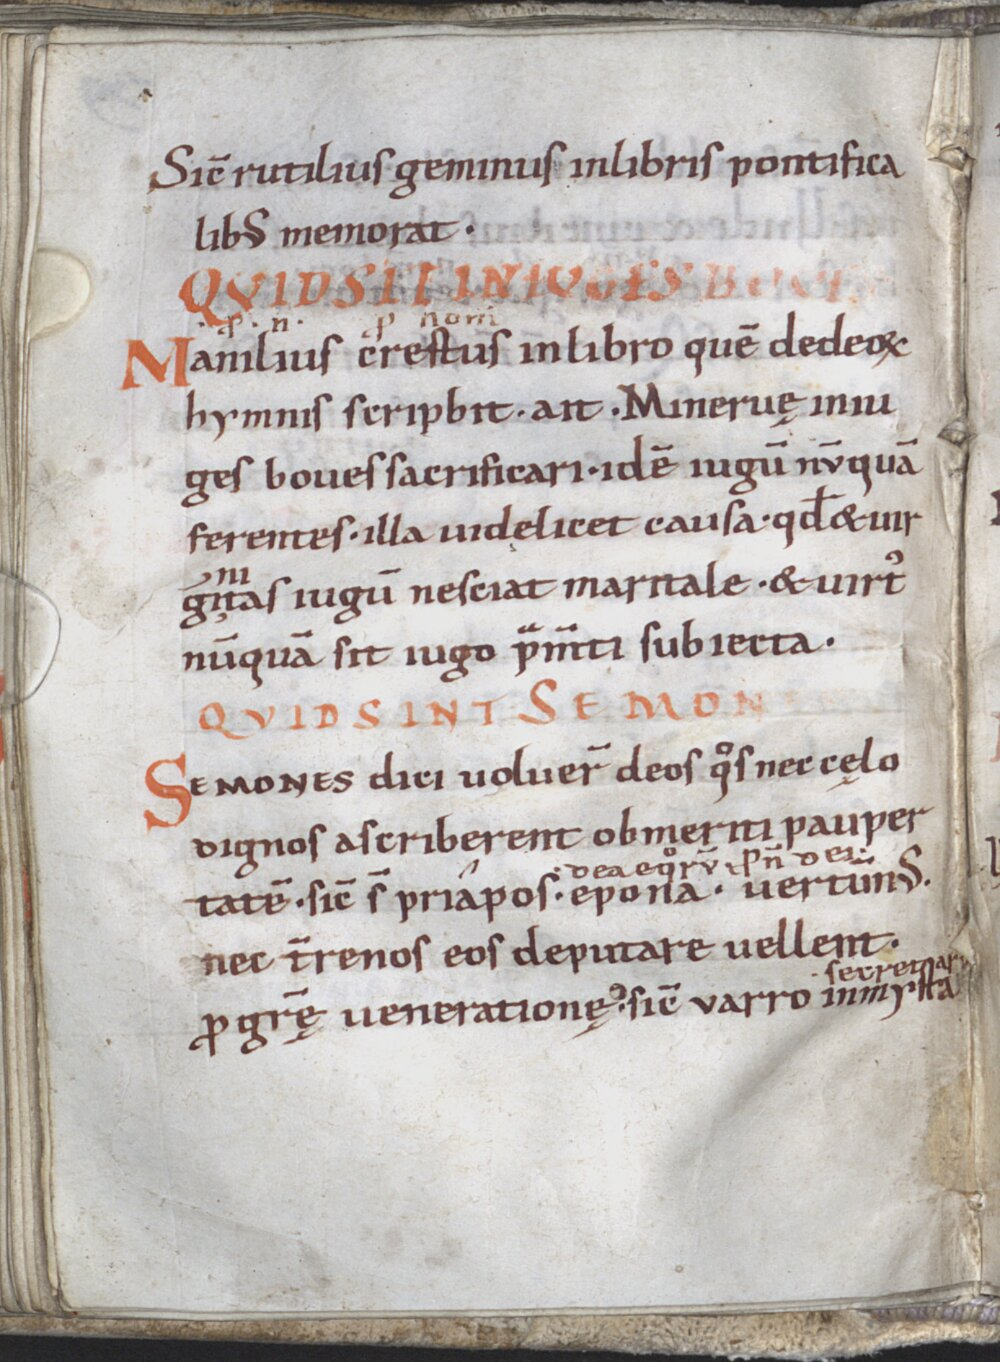 Sic̄ rutilius geminus in libris pontifica
libS memorat·
QVID SIT INIVGES BOVES
·ꝓ·n· ꝓ nom̄
Manilius c̄restus in libro quē dedeoꝝ
hymnis scripbit· ait · Mineruę iniu
ges boues sacrificari · idē iugū nv̄quā
ferentes· illa uidęlicet causa· qđ & uir
ni
gitas iugū nesciat maritale · & uirt᾽
nūquā sit iugo p̄m̄ti subiecta·
QVID SINT SEMON
SEMONES dici uoluer̄ deos qͦs nec cęlo
dignos ascriberent ob meriti pauper
·dea eqͦrv̄ ·ꝓn̄ dei·
tatē · sic̄ s̄ priapos· epona· uertūnS.
nec t̄renos eos deputare uellent·
secretar
ꝓ gr̄ę uenerationę· sic̄ varro in mysta